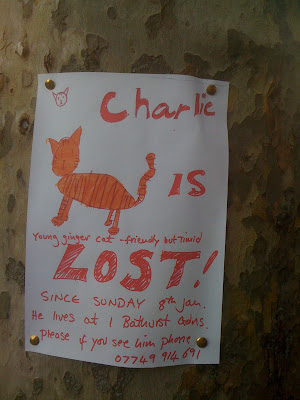 Charlie
IS
Young ginger cat - friendly but Timid
LOST!
SINCE SUNDAY 8th Jan.
He lives at 1 Bathurst Gdns.
please if you see him phone
07749 914 691